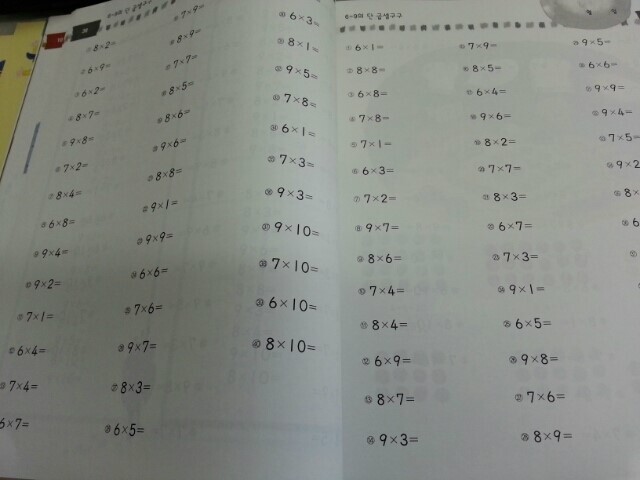 6~9의 단 곱셈구구
① 8×2=
② 6×9=
③ 6×2=
④ 8×7=
⑤ 9×8=
⑥ 7×2=
⑦ 8×4=
⑧ 6×8=
⑨ 9×4=
⑩ 9×2=
⑪ 7×1=
⑫ 6×4=
⑬ 7×4=
6×7=
7×9=
8×9=
7×7=
8×5=
8×6=
9×6=
8×8=
9×1=
9×9=
6×6=
7×6=
9×7=
8×3=
6×5=
6×3=
8×1=
9×5=
7×8=
6×1=
7×3=
9×3=
9×10=
7×10=
6×10=
8×10=
6~9의 단 곱셈구구
① 6×1=
② 8×8=
③ 6×8=
④ 7×8=
⑤ 7×1=
⑥ 6×3=
⑦ 7×2=
⑧ 9×7=
⑨ 8×6=
⑩ 7×4=
⑪ 8×4=
⑫ 6×9=
⑬ 8×7=
⑭ 9×3=
7×9=
8×5=
6×4=
9×6=
8×2=
7×7=
8×3=
6×7=
7×3=
9×1=
6×5=
9×8=
7×6=
8×9=
9×5=
6×6=
9×9=
9×4=
7×5=
9×2
8×
6